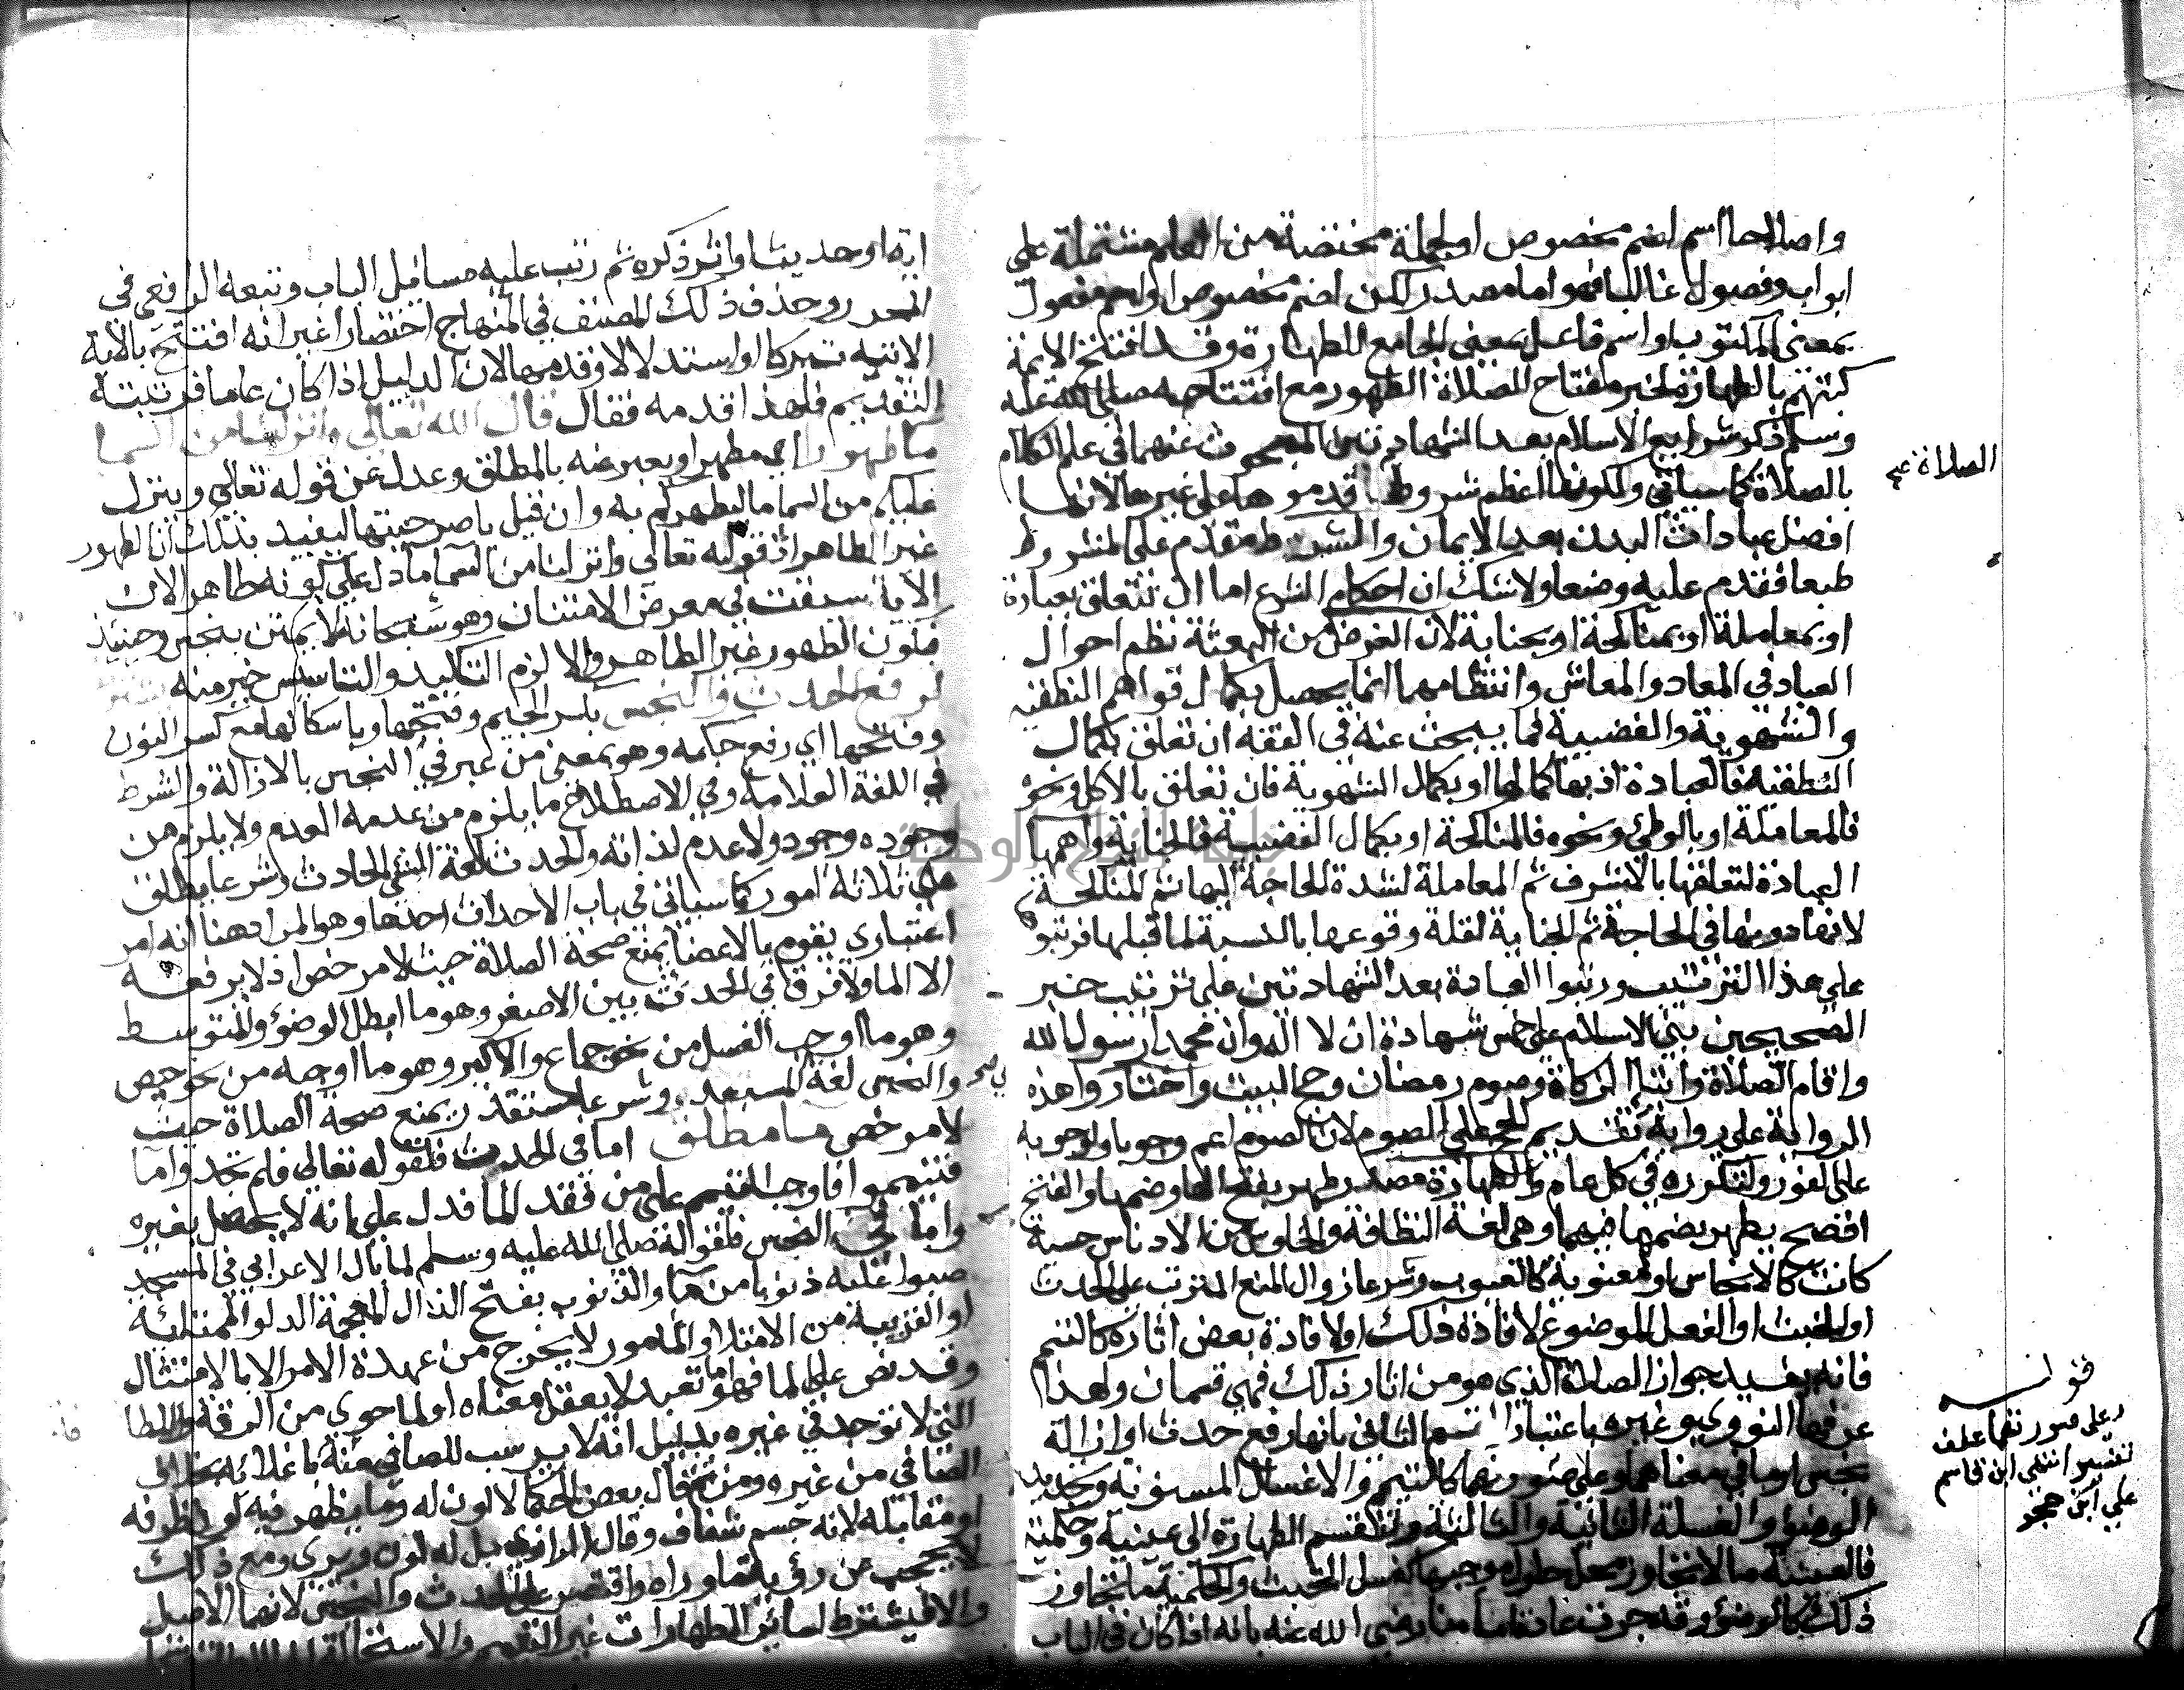 واصطلاحا اسم لضم مخصوص او لجملة مختصة من العلم مشتملة على
ابواب وفصول غالبا فهو اما مصدر لكن لضم مخصوص او اسم مفعول
بمعنى المكتوب او اسم فاعل بمعنى الجامع للطهارة وقد افتتح الائمة
كتبهم بالطهارة لخبر مفتاح الصلاة الطهور مع افتتاحه صلى الله عليه
وسلم ذكر شرايع الاسلام بعد الشهادتين المبحوث عنهما في علم الكلام
بالصلاة كما سياتي ولكونها اعظم شروط قدموها على غيرها لانها
الصلاة صح
افضل عبادات البدن بعد الايمان والشرط مقدم على المشروط
طبعا فقدم عليه وضعا ولا شك ان احكام الشرع اما ان تتعلق بعبادة
او بمعاملة او بمناكحة او بجناية لان الغرض من البعثة نظم احوال
العباد في المعاد والمعاش وانتظامهما انما يحصل بكمال قواهم النطقية
والشهوية والغضبية فما يبحث عنه في الفقه ان تعلق بكمال
النطقية فالعبادة اذ بها كمالها او بكمال الشهوية فان تعلق بالاكل ونحوه
فالمعاملة او بالوطئ ونحوه فالمناكحة او بكمال الغضبية فالجناية واهمها
العبادة لتعلقها بالاشرف ثم المعاملة لشدة الحاجة اليها ثم المناكحة
لانها دونها في الحاجة ثم الجناية لقلة وقوعها بالنسبة لما قبلها فرتبوا
على هذا الترتيب ورتبوا العبادة بعد الشهادتين على ترتيب خبر
الصحيحين بني الاسلام على خمس شهادة ان لا اله وان محمدا رسول الله
واقام الصلاة وايتا الزكاة وصوم رمضان وحج البيت واختاروا هذه
الرواية على رواية تقديم الحج على الصوم لان الصوم اعم وجوبا ولوجوبه
على الفور ولتكرره في كل عام والطهارة مصدر طهر بفتح الها وضمها والفتح
افصح يطهر بضمها فيهما وهي لغة النظافة والخلوص من الادناس حسية
كانت كالانجاس او معنوية كالعيوب وشرعا زوال المنع المترتب على الحدث
او الخبث او الفعل الموضوع لافادة ذلك او لافادة بعض اثاره كالتيمم
فانه يفيد جواز الصلاة الذي هو من اثار ذلك فهي قسمان ولهذا
عرفها النووي وغيره باعتبار القسم الثاني بانها رفع حدث او ازالة
نجس او ما في معناهما وعلى صورتهما كالتيمم والاغسال المسنونة وتجديد
الوضوء والغسلة الثانية والثالثة وتنقسم الطهارة الى عينية وحكمية
فالعينية ما لا تتجاوز محل حلول موجبها كغسل الخبث والحكمية ما تتجاوز
ذلك كالوضوء وقد جرت عادة امامنا رضي الله عنه بانه اذا كان في الباب
قوله
وعلى صورتهما عطف
تفسير انتهى ابن قاسم
على ابن حجر
اية او حديث او اثر ذكره ثم رتب عليه مسايل الباب وتبعه الرافعي في
المحرر وحذف ذلك المصنف في المنهاج اختصارا غير انه افتتح بالاية
الاتية تبركا او استدلالا وقدمها لان الدليل اذا كان عاما فرتبته
التقديم فلهذا قدمه فقال قال الله تعالى وانزلنا من السما
ما طهورا اي مطهرا ويعبر عنه بالمطلق وعدل عن قوله تعالى وينزل
عليكم من السما ما ليطهركم به وان قيل باصرحيتها ليفيد بذلك ان الطهور
غير الطاهر اذ قوله تعالى وانزلنا من السما ما دل على كونه طاهرا لان
الاية سيقت في معرض الامتنان وهو سبحانه لا يمتن بنجس وحينيذ
فيكون الطهور غير الطاهر والا لزم التاكيد والتاسيس خير منه
لرفع الحدث والنجس بكسر الجيم وفتحها وباسكانها مع كسر النون
وفتحها اي رفع حكمه وهو بمعنى من عبر في النجس بالازالة والشرط
في اللغة العلامة وفي الاصطلاح ما يلزم من عدمه العدم ولا يلزم من
وجوده وجود ولا عدم لذاته والحدث لغة الشي الحادث وشرعا يطلق
على ثلاثة امور كما سياتي في باب الاحداث احدها وهو المراد هنا انه امر
اعتباري يقوم بالاعضا يمنع صحة الصلاة حيث لا مرخص اذ لا يرفعه
الا الما ولا فرق في الحدث بين الاصغر وهو ما ابطل الوضوء والمتوسط
وهو ما اوجب الغسل من نحو جماع والاكبر وهو ما اوجبه من نحو حيض
والنجس لغة المستبعد وشرعا مستقذر يمنع صحة الصلاة حيث
لا مرخص ما مطلق اما في الحدث فلقوله تعالى فلم تجدوا ما
فتيمموا فاوجب التيمم على من فقد الما فدل على انه لا يحصل بغيره
واما في النجس فلقوله صلى الله عليه وسلم لما بال الاعرابي في المسجد
صبوا عليه ذنوبا من ما والذنوب بفتح الذال المعجمة الدلو الممتلئة
او القريبة من الامتلا والمامور لا يخرج من عهدة الامر الا بالامتثال
وقد نص على الما فهو اما تعبد لا يعقل معناه او لما حوى من الرقة واللطا
التي لا توجد في غيره بدليل انه لا يرسب للصافي منه باغلائه بخلاف
الصافي من غيره ومن ثم قال بعض الحكما لا لون له وما يظهر فيه لون ظرفه
او مقابله لانه جسم شفاف وقال الرازي بل له لون ويرى ومع ذلك
لا يحجب عن رؤية ما وراه واقتصر على الحدث والنجس لانهما الاصل
والا فيشترط لسائر الطهارات غير التيمم والاستحالة